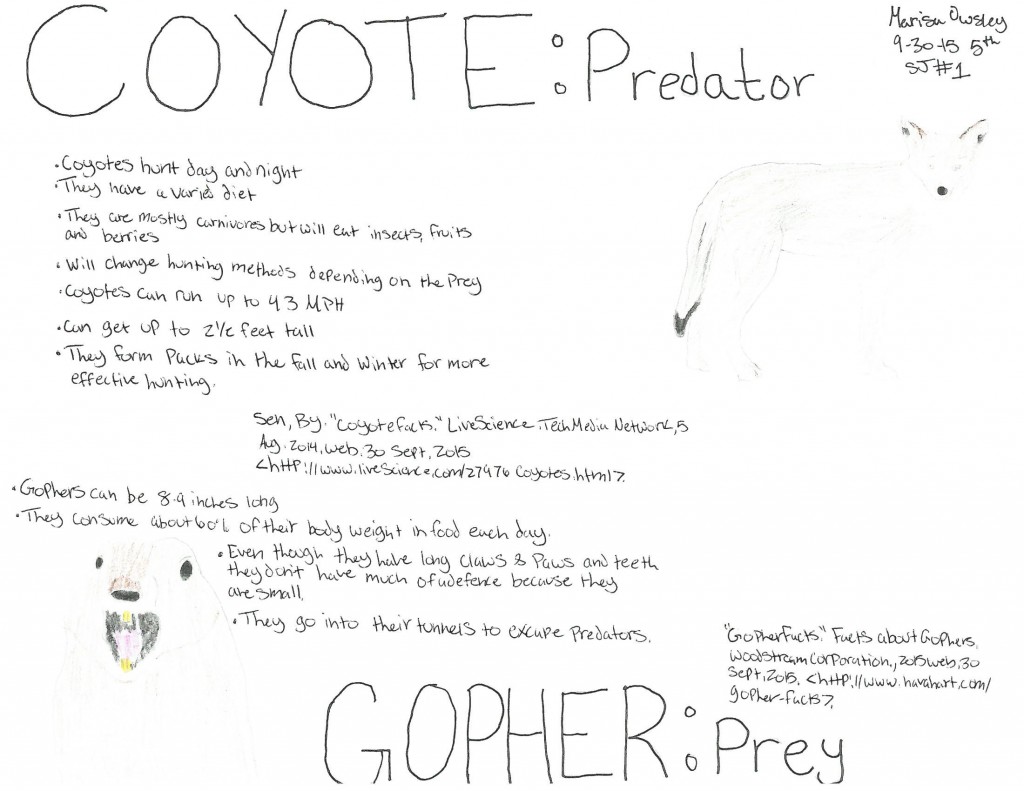 COYOTE: Predator
Marisa Owsley
9-30-15 5th
SJ#1
• Coyotes hunt day and night
• They have a varied diet
• They are mostly carnivores but will eat insects, fruits
and berries
• Will change hunting methods depending on the Prey
• Coyotes can run up to 43 MPH
• Can get up to 2½ feet tall
• They form Packs in the fall and Winter for more
effective hunting.
Sen, By. "Coyote Facts." LiveScience. TechMedia Network, 5
Aug. 2014. Web. 30 Sept. 2015
<http://www.livescience.com/27976 coyotes.html>.
• Gophers can be 8-9 inches long
• They consume about 60% of their body weight in food each day.
• Even though they have long claws & Paws and teeth
they don't have much of a defence because they
are small.
• They go into their tunnels to excape Predators.
"Gopher Facts." Facts about Gophers.
Woodstream Corporation., 2015 web. 30
Sept. 2015. <http://www.havahart.com/
gopher-facts>.
GOPHER: Prey